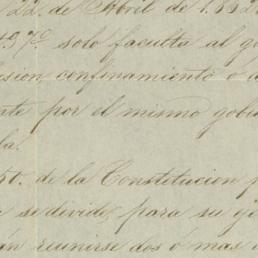 22 de Abril de 1852
solo faculta al go
sion confinamiento ó d
nte por el mismo gobie
la.
50. de la Constitucion p
a se divide, para su go
án reunirse dos ó mas